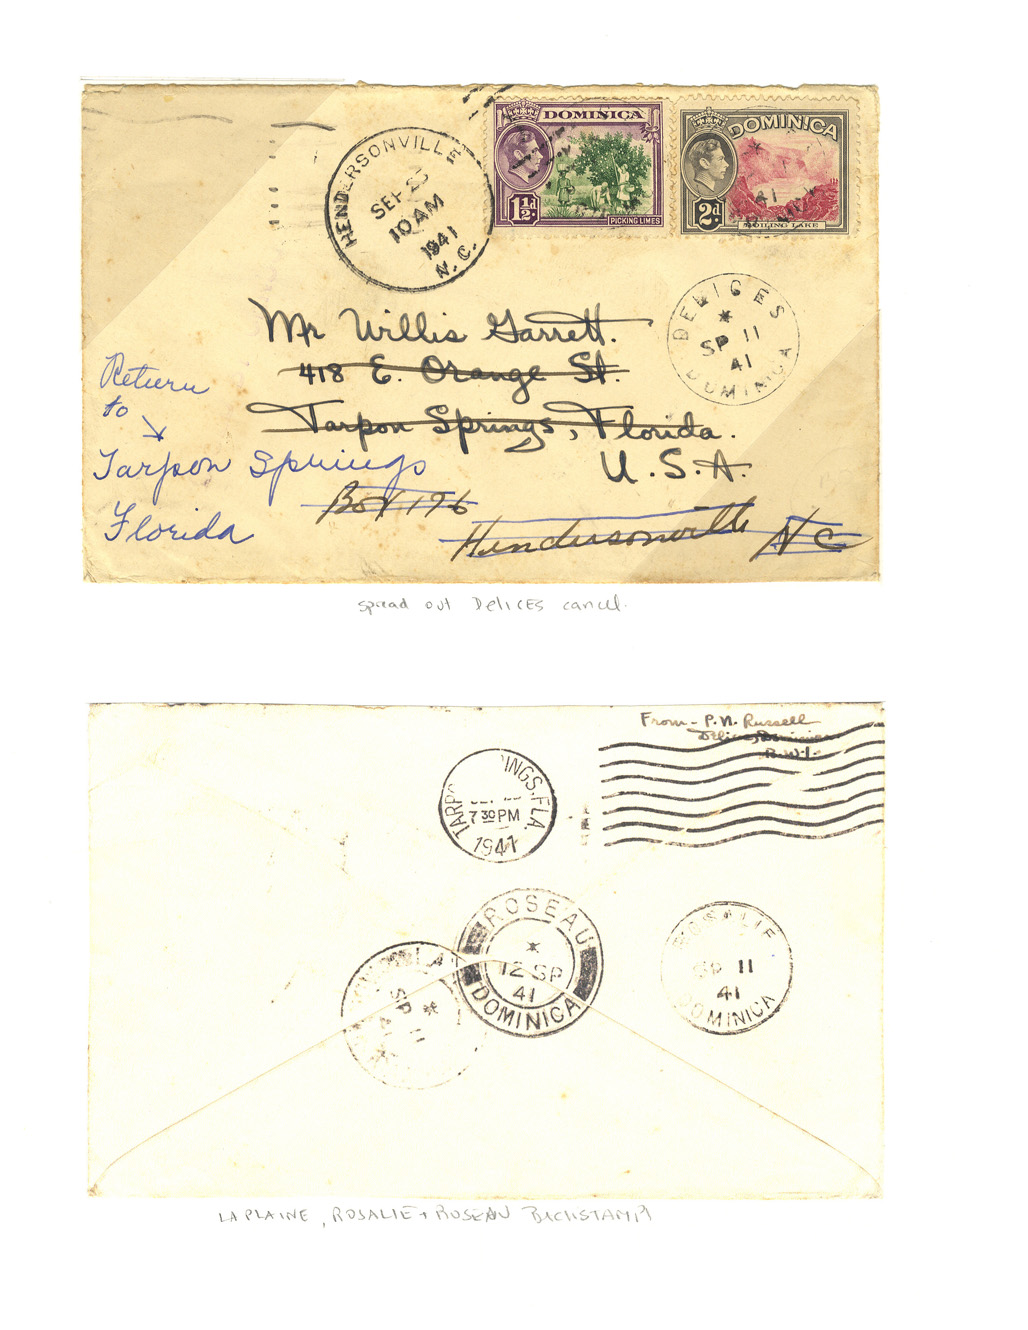 HENDERSONVILLE
SEP 23
10 AM
1941
N. C.
DOMINICA
1½d.
PICKING LIMES
DOMINICA
2d
BOILING LAKE
41
DELICES
SP 11
41
DOMINICA
Mr Willis Garrett.
418 E. Orange St.
Tarpon Springs, Florida.
U.S.A.
Return
to
Tarpon Springs
Florida
Box 196
Hendersonville NC
spread out DELICES cancel.
From - P. N. Russell
Delices, Dominica
B.W.I.
TARP INGS, FLA.
7 30 PM
1941
ROSEAU
12 SP
41
DOMINICA
ROSALIE
SP 11
41
DOMINICA
LA
SP 11
41
LA PLAINE, ROSALIE + ROSEAU BACKSTAMPS